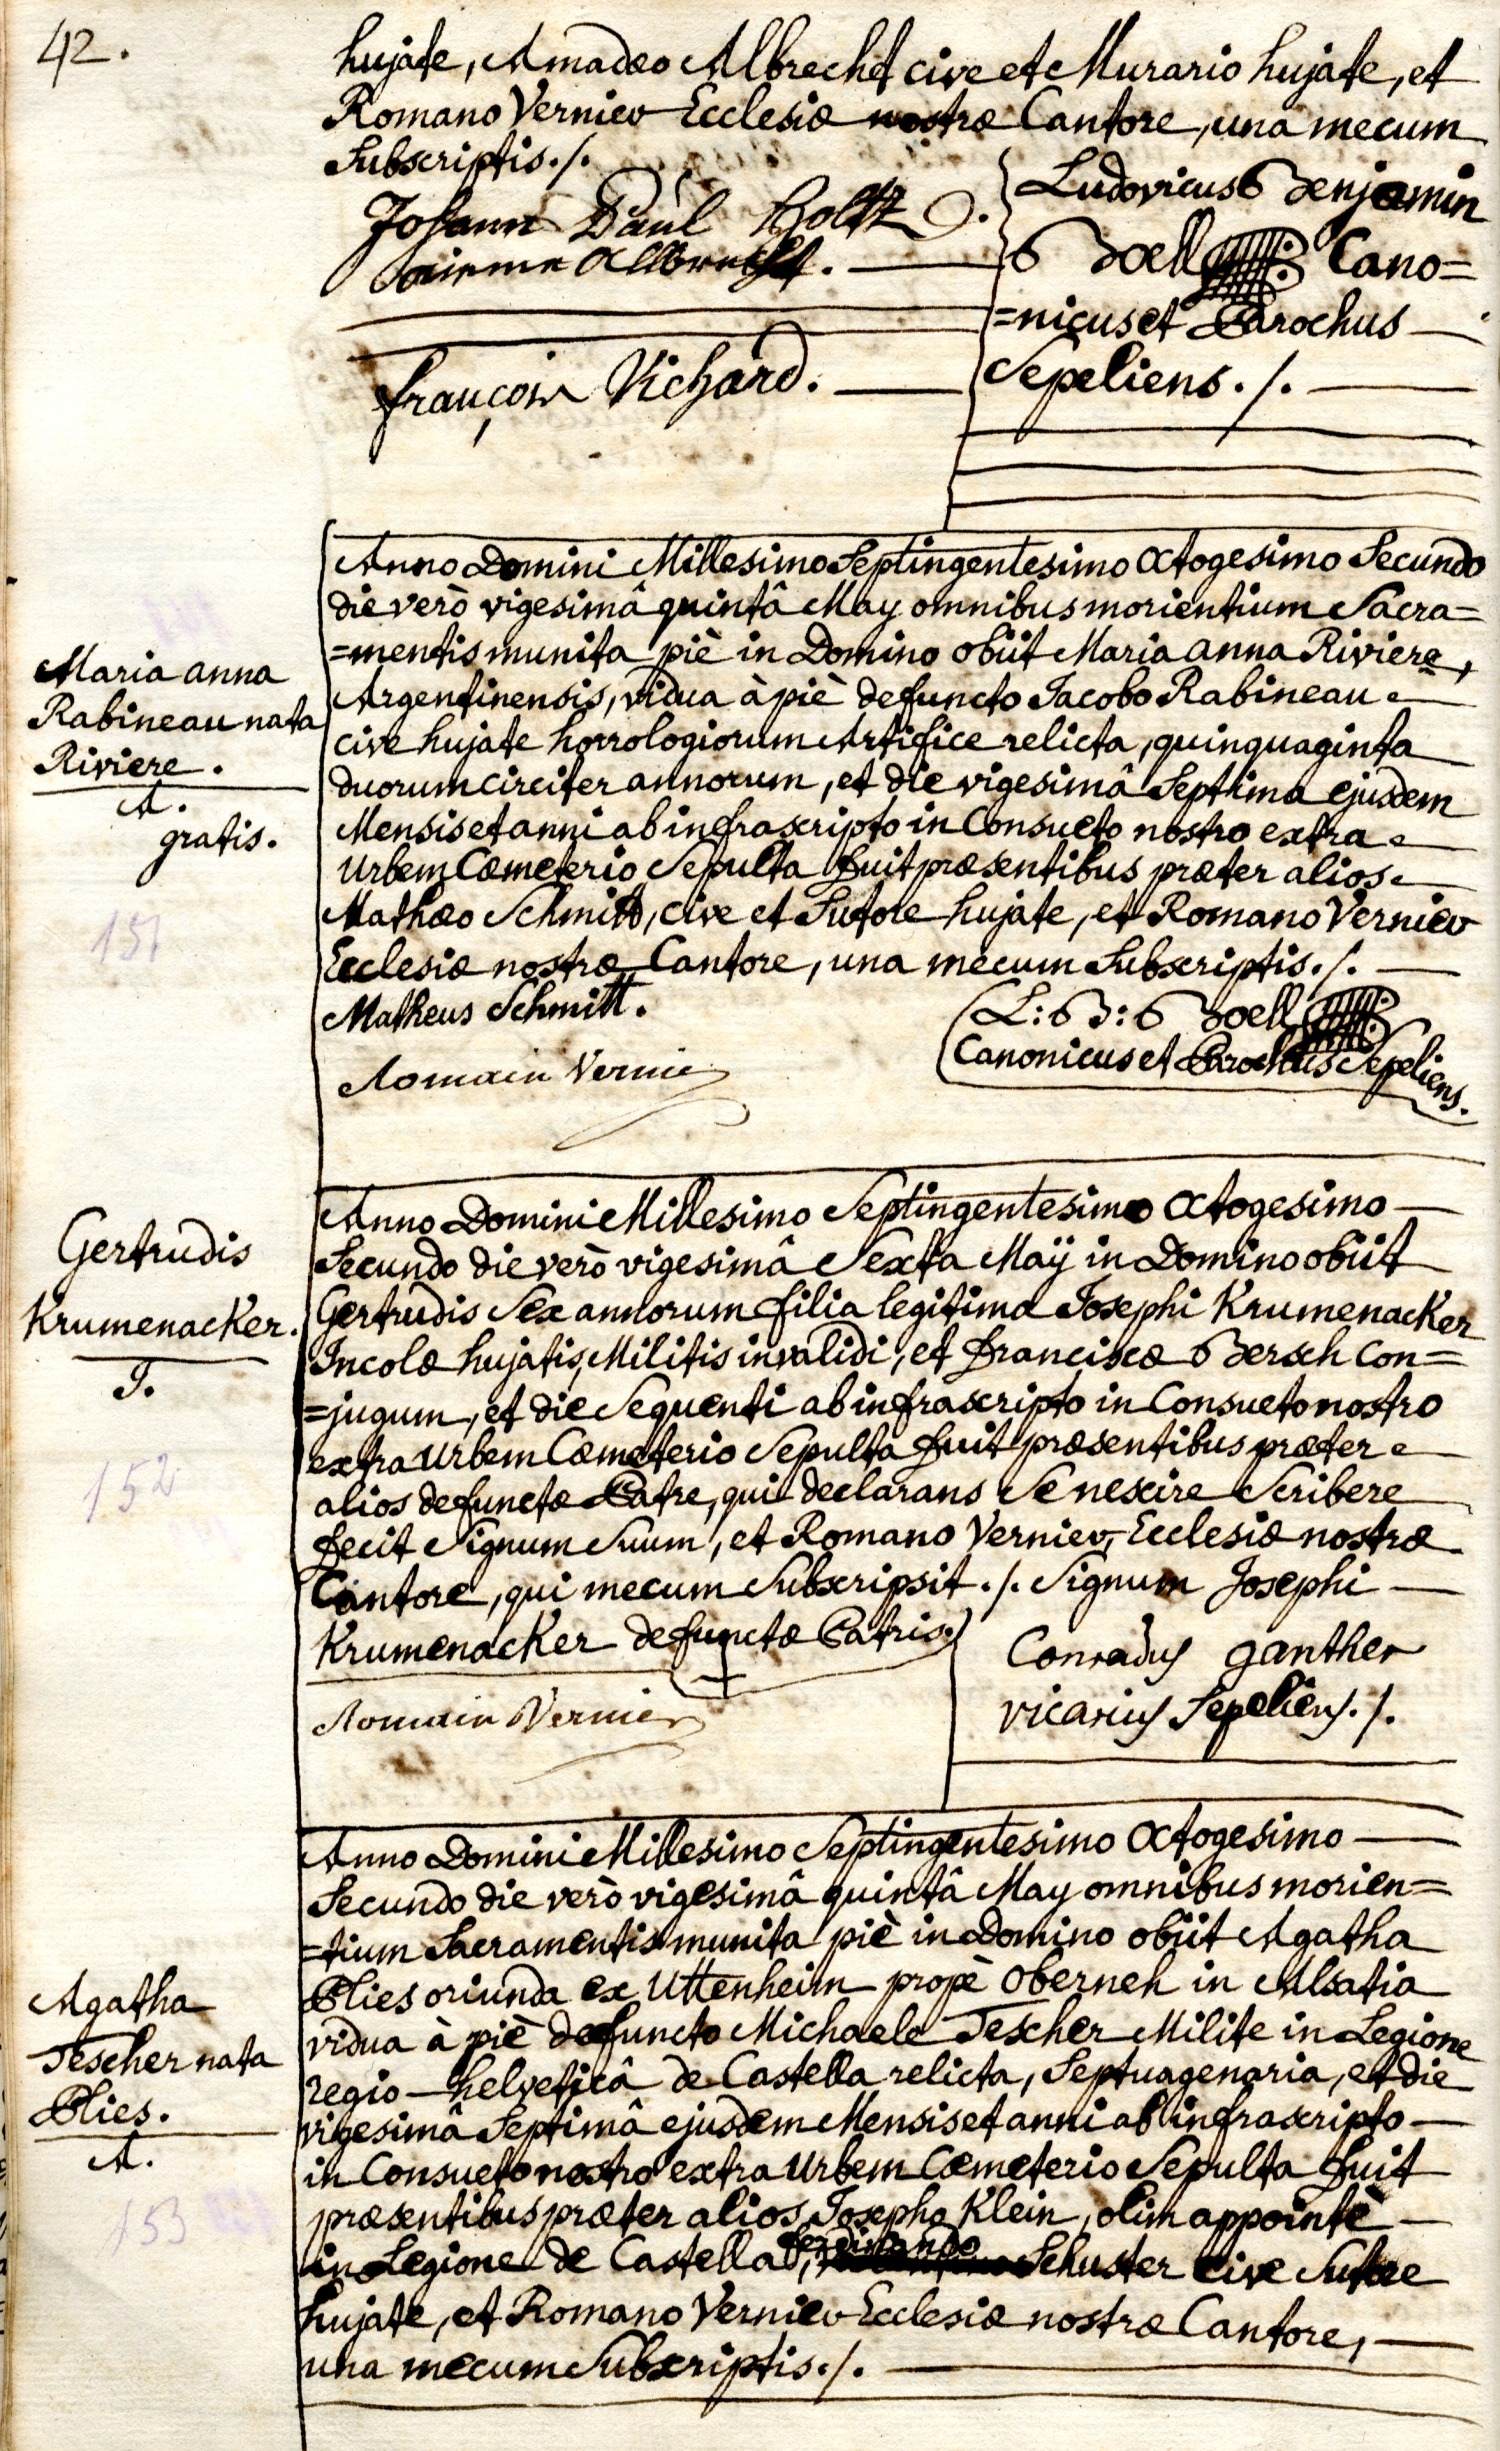 42.
hujate, Amadeo Albrecht cive et Murario hujate, et
Romano Vernier Ecclesiæ nostræ Cantore, una mecum
Subscriptis./.
Johann Paul
Albrecht.
françois Richard.
Ludovicus Benjamin
Boell Cano=
=nicus et Parochus
Sepeliens./.
Maria anna
Rabineau nata
Riviere.
A.
gratis.
151
Anno Domini Millesimo Septingentesimo Octogesimo Secundo
die verò vigesimâ quintâ May omnibus morientium Sacra=
=mentis munita piè in Domino obiit Maria anna Riviere,
Argentinensis, vidua à piè defuncto Jacobo Rabineau
cive hujate horrologiorum Artifice relicta, quinquaginta
duorum circiter annorum, et die vigesimâ Septima ejusdem
Mensis et anni ab infrascripto in Consueto nostro extra
Urbem Cœmeterio Sepulta fuit præsentibus præter alios
Mathæo Schmitt, cive et Sutore hujate, et Romano Vernier
Ecclesiæ nostræ Cantore, una mecum Subscriptis./.
Matheus Schmitt.
Romain Vernier
L: B: Boell
Canonicus et Parochus Sepeliens.
Gertrudis
Krumenacker.
J.
152
Anno Domini Millesimo Septingentesimo Octogesimo
Secundo die verò vigesimâ Sexta Maÿ in Domino obiit
Gertrudis Sex annorum filia legitima Josephi Krumenacker
Incolæ hujatis, Militis invalidi, et franciscæ Bersch Con=
=jugum, et die Sequenti ab infrascripto in Consueto nostro
extra Urbem Cœmeterio Sepulta fuit præsentibus præter
alios defunctæ Patre, qui declarans Se nescire Scribere
fecit Signum Suum, et Romano Vernier, Ecclesiæ nostræ
Cantore, qui mecum Subscripsit./. Signum Josephi
Krumenacker defunctæ Patris.
Romain Vernier
Conradus ganther
vicarius Sepeliens./.
Agatha
Tescher nata
Plies.
A.
153
Anno Domini Millesimo Septingentesimo Octogesimo
Secundo die verò vigesimâ quintâ May omnibus morien=
=tium Sacramentis munita piè in Domino obiit Agatha
Plies oriunda ex Uttenheim propè Oberneh in Alsatia
vidua à piè defuncto Michaele Tescher Milite in Legione
regio-helveticâ de Castella relicta, Septuagenaria, et die
vigesimâ Septimâ ejusdem Mensis et anni ab infrascripto
in Consueto nostro extra Urbem Cœmeterio Sepulta fuit
præsentibus præter alios Josepho Klein, olim appointè
in Legione de Castella, ferdinando Schuster cive Sutore
hujate, et Romano Vernier Ecclesiæ nostræ Cantore,
una mecum Subscriptis./.